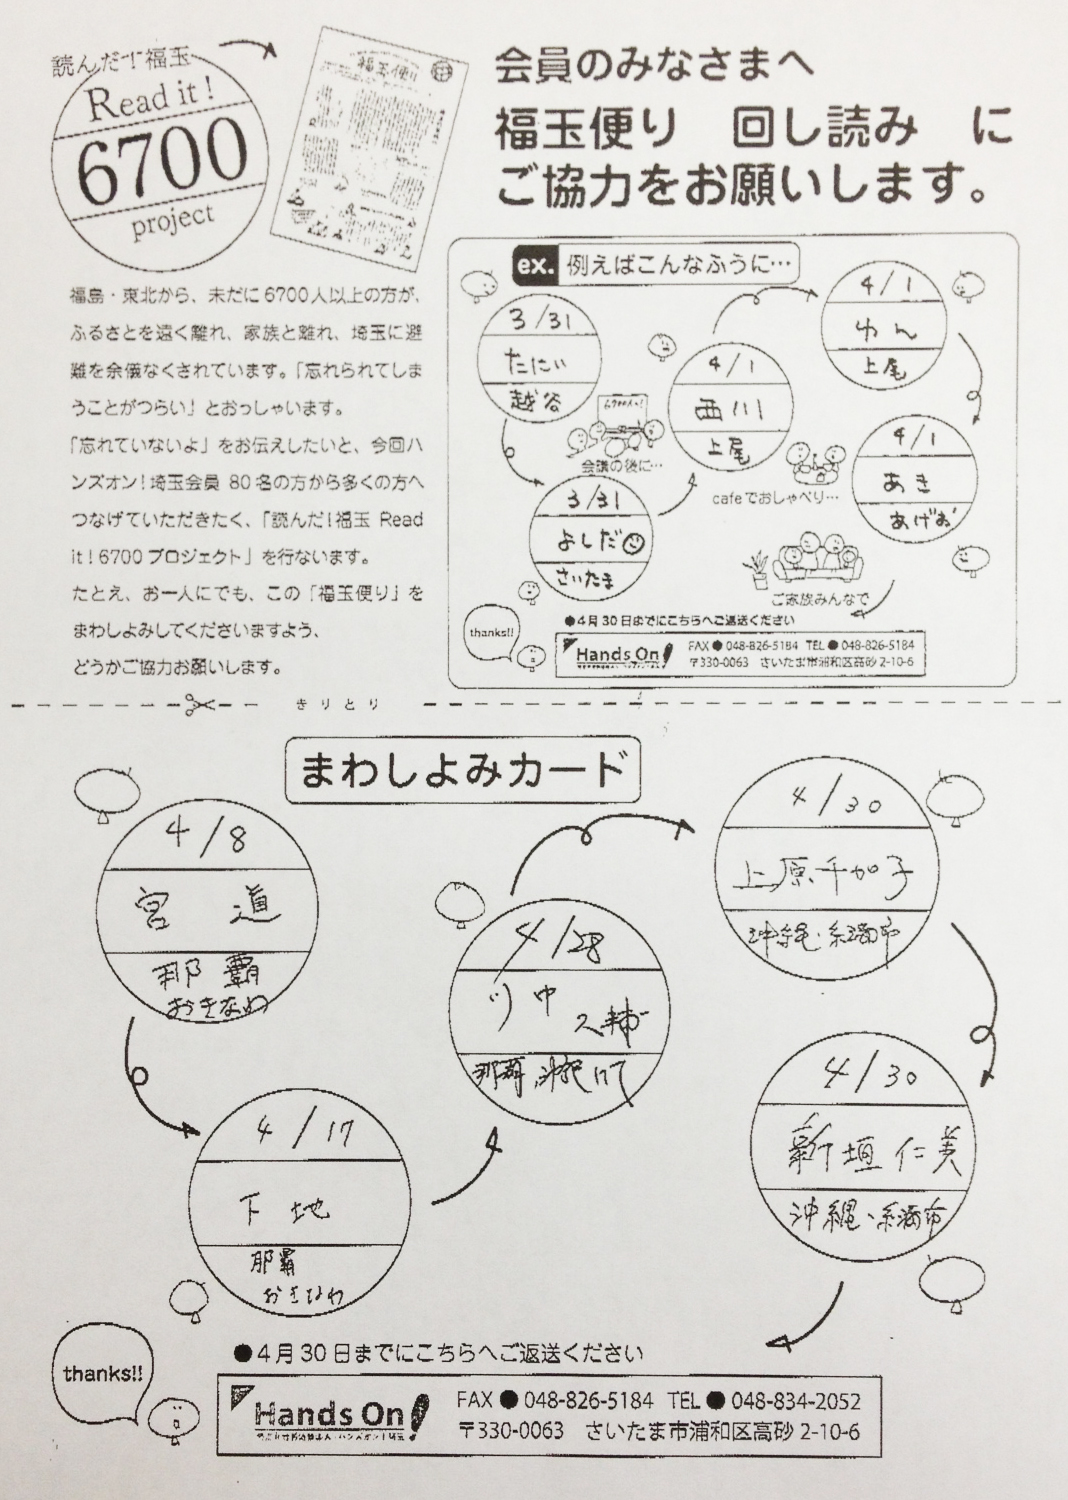 読んだ!福玉
Read it!
6700
project
会員のみなさまへ
福玉便り 回し読み に
ご協力をお願いします。
福島・東北から、未だに6700人以上の方が、
ふるさとを遠く離れ、家族と離れ、埼玉に避
難を余儀なくされています。「忘れられてしま
うことがつらい」とおっしゃいます。
「忘れていないよ」をお伝えしたいと、今回ハ
ンズオン!埼玉会員 80名の方から多くの方へ
つなげていただきたく、「読んだ!福玉 Read
it!6700プロジェクト」を行ないます。
たとえ、お一人にでも、この「福玉便り」を
まわしよみしてくださいますよう、
どうかご協力お願いします。
ex. 例えばこんなふうに…
3/31
たにい
越谷
会議の後に…
3/31
よしだ
さいたま
4/1
西川
上尾
cafeでおしゃべり…
4/1
ゆん
上尾
4/1
あき
あげお
ご家族みんなで
●4月30日までにこちらへご返送ください
thanks!!
Hands On!
FAX●048-826-5184 TEL●048-826-5184
〒330-0063 さいたま市浦和区高砂2-10-6
きりとり
まわしよみカード
4/8
宮 道
那覇
おきなわ
4/17
下地
那覇
おきなわ
4/28
中
那覇
4/30
上原千加子
沖縄・糸満市
4/30
新垣仁美
沖縄・糸満市
●4月30日までにこちらへご返送ください
thanks!!
Hands On!
FAX●048-826-5184 TEL●048-834-2052
〒330-0063 さいたま市浦和区高砂2-10-6